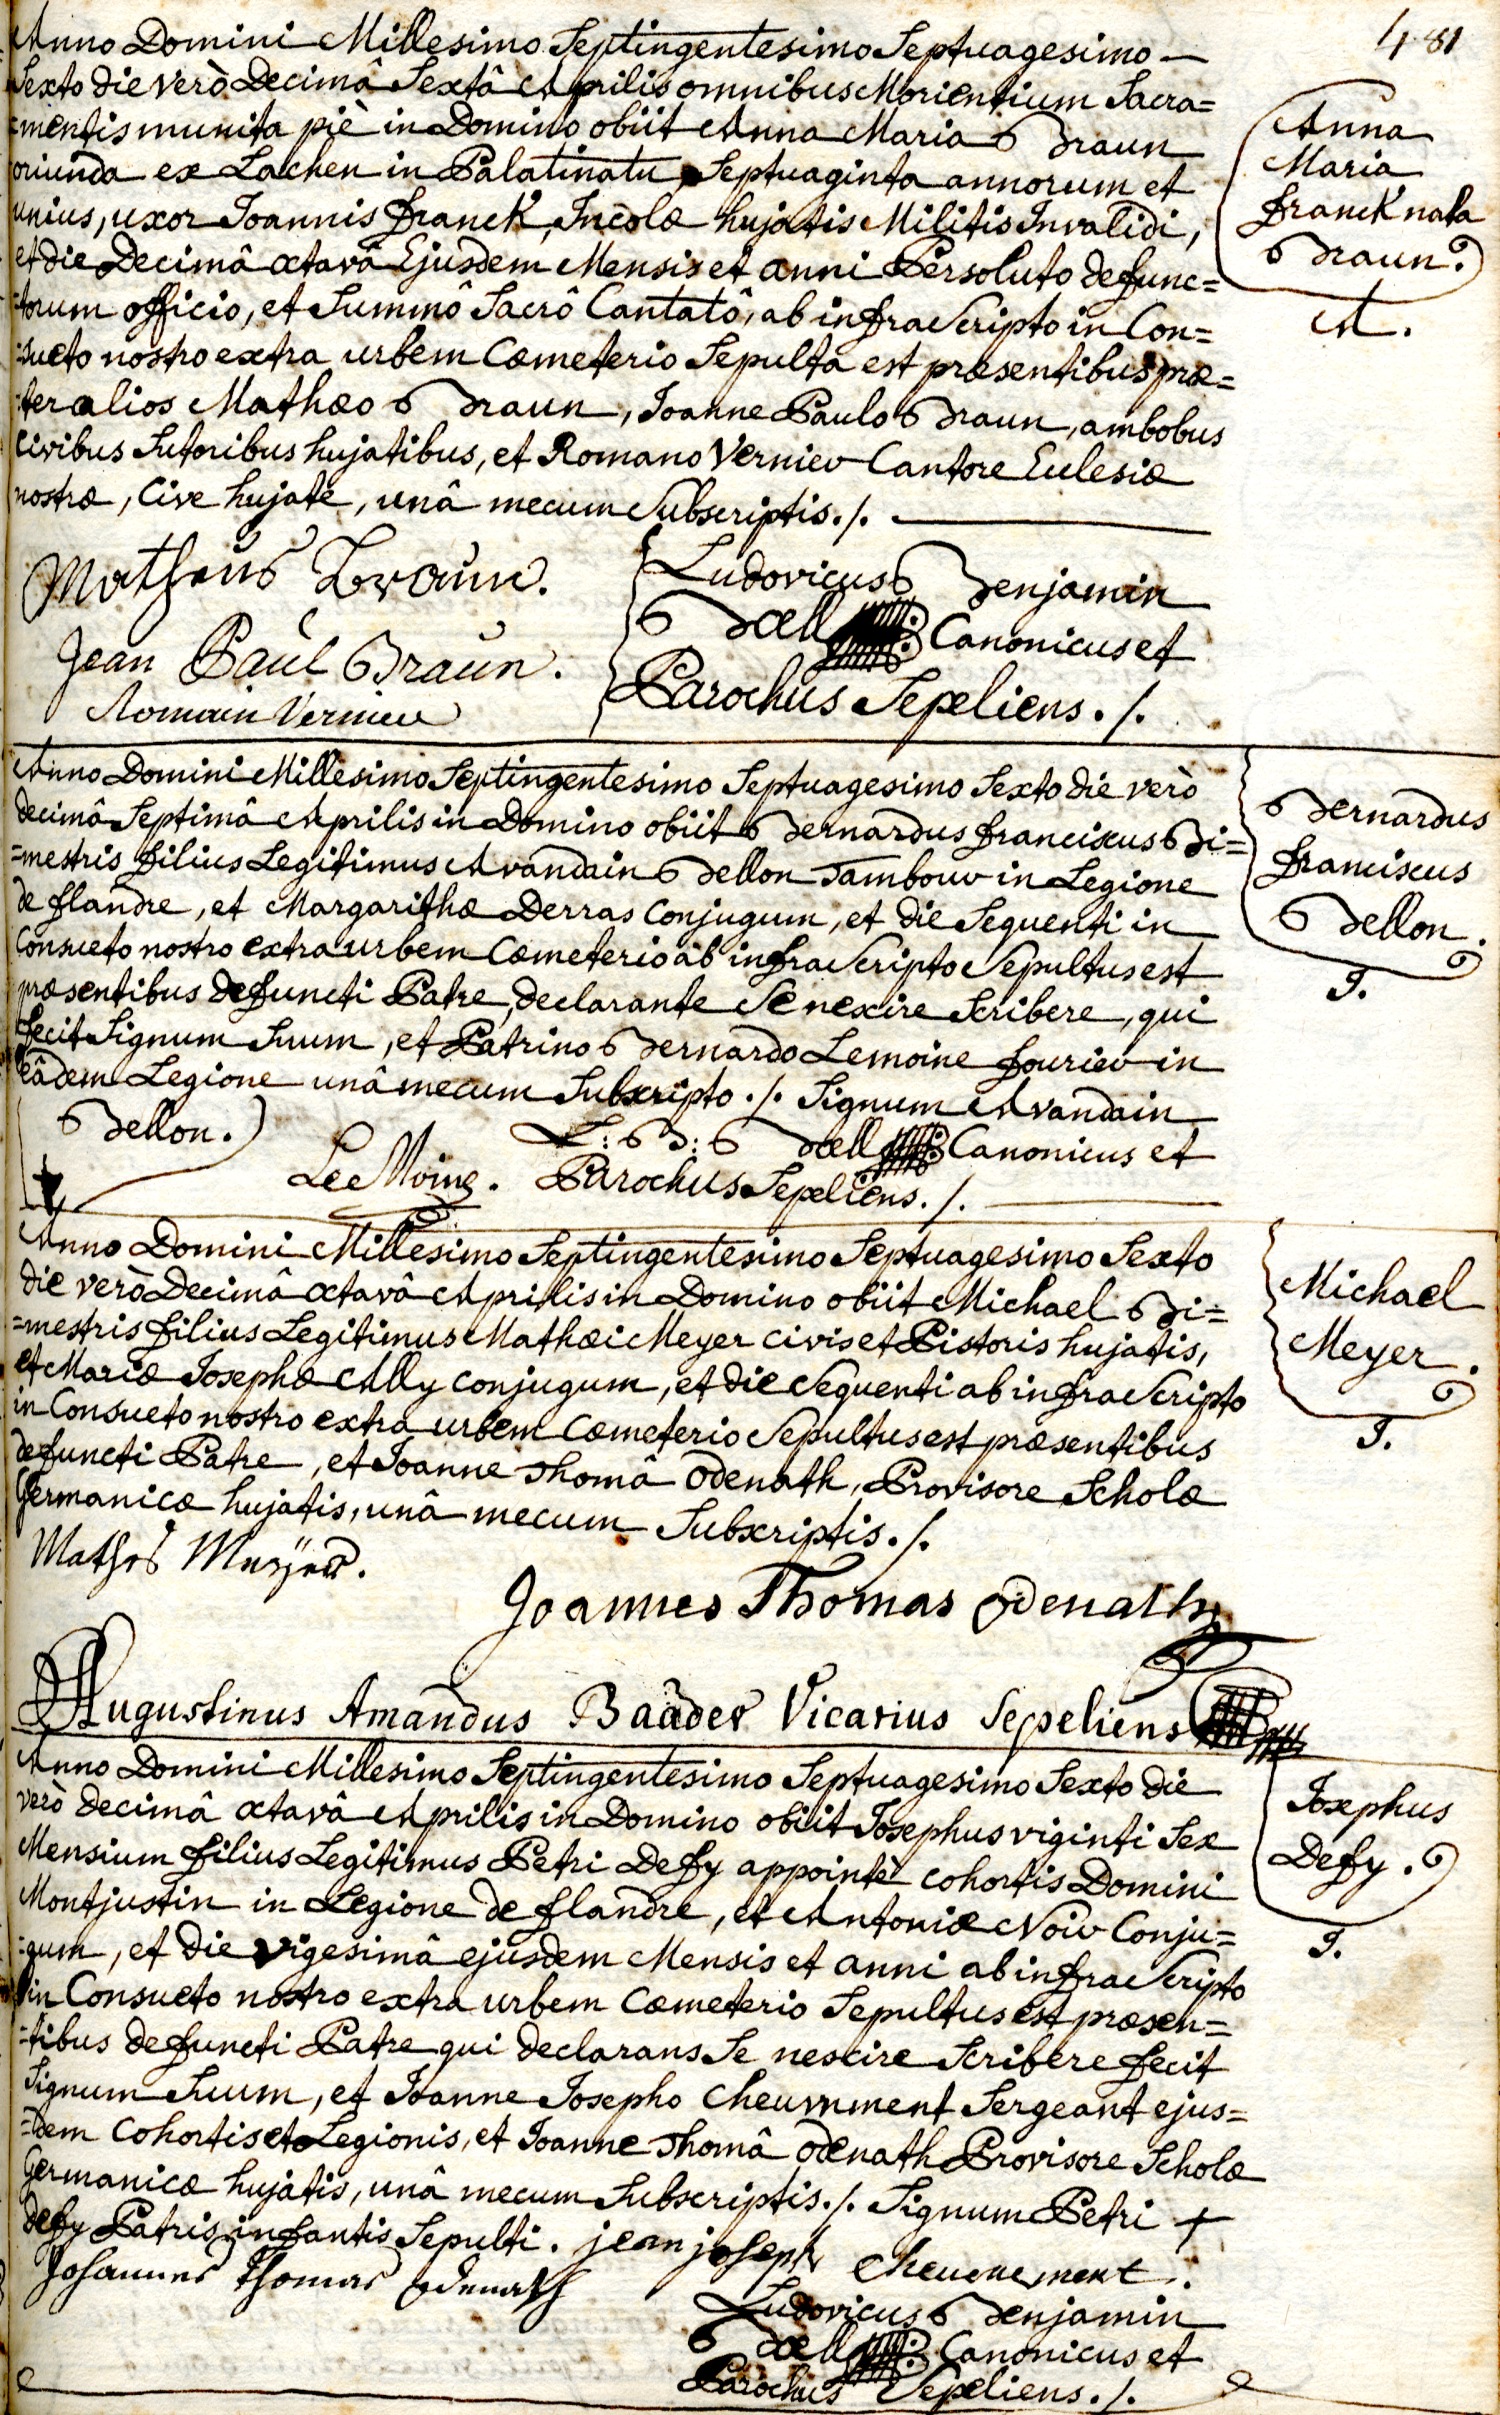 481
Anno Domini Millesimo Septingentesimo Septuagesimo —
Sexto die verò Decimâ Sextâ Aprilis omnibus Morientium Sacra=
=mentis munita piè in Domino obiit Anna Maria Braun
oriunda ex Lachen in Palatinatu, Septuaginta annorum et
unius, uxor Joannis Franck, Incolæ hujatis Militis Invalidi,
et die Decimâ octavâ Ejusdem Mensis et anni Persoluto defunc=
=torum officio, et Summô Sacrô Cantatô, ab infra Scripto in Con=
=sueto nostro extra urbem Cœmeterio Sepulta est præsentibus præ=
=ter alios Mathæo Braun, Joanne Paulo Braun, ambobus
Civibus Sutoribus hujatibus, et Romano Vernier Cantore Eulesiæ
nostræ, Cive hujate, unâ mecum Subscriptis ./.
Anna
Maria
Franck nata
Braun.
A.
Matheus Braun.
Jean Paul Braun.
Romain Vernier
Ludovicus Benjamin
Bœll Canonicus et
Parochus Sepeliens ./.
Anno Domini Millesimo Septingentesimo Septuagesimo Sexto die verò
decimâ Septimâ Aprilis in Domino obiit Bernardus Franciscus Bi=
=mestris Filius Legitimus Avandain Bellon Tambour in Legione
de flandre, et Margarithæ Derras Conjugum, et die Sequenti in
Consueto nostro extra urbem Cœmeterio ab infra Scripto Sepultus est
præsentibus defuncti Patre, declarante Se nescire Scribere, qui
fecit Signum Suum, et Patrino Bernardo Lemoine fourier in
eâdem Legione unâ mecum Subscripto ./. Signum Avandain
Bellon.
Le Moine.
L: B: Bœll Canonicus et
Parochus Sepeliens ./.
Bernardus
Franciscus
Bellon.
I.
Anno Domini Millesimo Septingentesimo Septuagesimo Sexto
die verò Decimâ octavâ Aprilis in Domino obiit Michael Bi=
=mestris Filius Legitimus Mathæi Meyer civis et Pistoris hujatis,
et Mariæ Josephæ Ally conjugum, et die Sequenti ab infra Scripto
in Consueto nostro extra urbem Cœmeterio Sepultus est præsentibus
defuncti Patre, et Joanne Thomâ Odenath, Provisore Scholæ
Germanicæ hujatis, unâ mecum Subscriptis ./.
Michael
Meyer.
I.
Mathes
Joannes Thomas Odenath
Augustinus Amandus Baader Vicarius Sepeliens
Anno Domini Millesimo Septingentesimo Septuagesimo Sexto die
verò decimâ octavâ Aprilis in Domino obiit Josephus viginti Sex
Mensium Filius Legitimus Petri Defy appointè cohortis Domini
Montjustin in Legione de flandre, et Antoniæ Noir Conju=
=gum, et die vigesimâ ejusdem Mensis et anni ab infra Scripto
in Consueto nostro extra urbem Cœmeterio Sepultus est præsen=
=tibus defuncti Patre qui declarans Se nescire Scribere fecit
Signum Suum, et Joanne Josepho Sergeant ejus=
=dem Cohortis et Legionis, et Joanne Thomâ Odenath Provisore Scholæ
Germanicæ hujatis, unâ mecum Subscriptis ./. Signum Petri +
defy Patris infantis Sepulti. jean joseph
Johannes Thomas Odenath
Ludovicus Benjamin
Bœll Canonicus et
Parochus Sepeliens ./.
Josephus
Defy.
I.